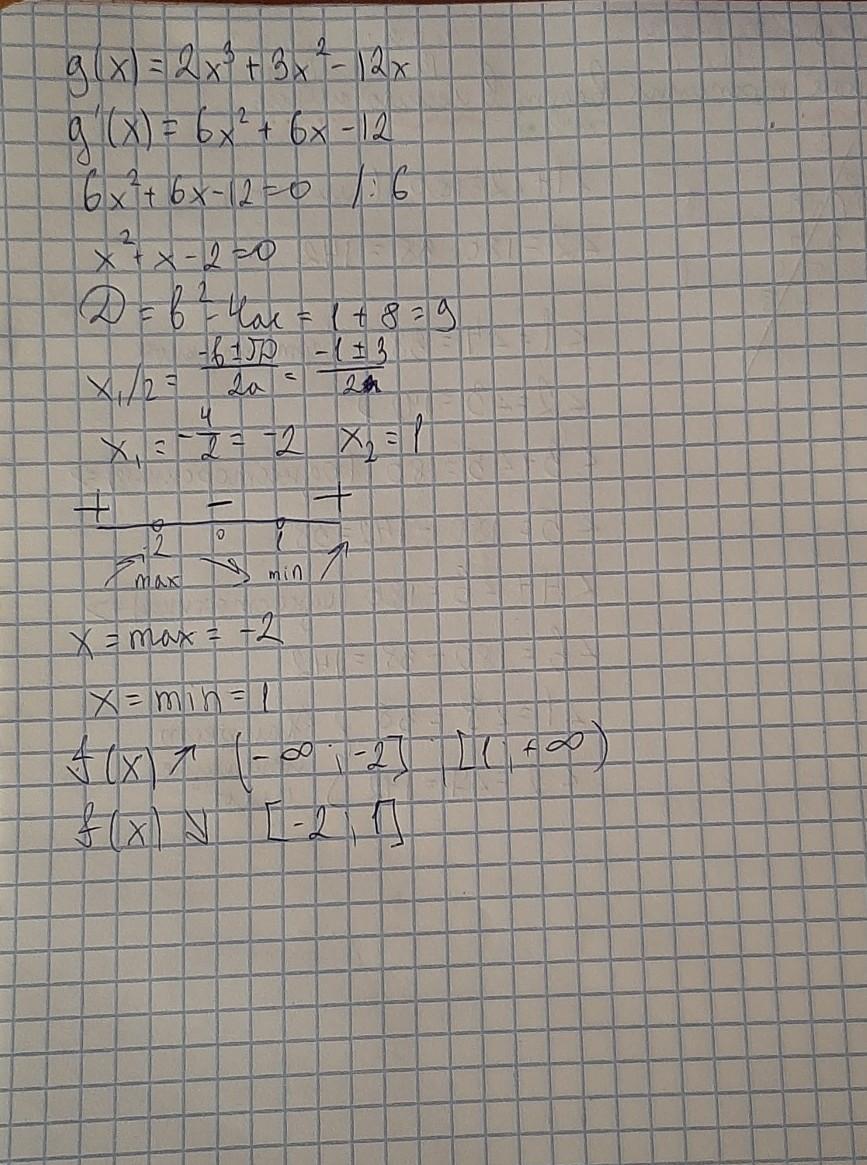 g(x) = 2x³ + 3x² - 12x
g'(x) = 6x² + 6x - 12
6x² + 6x - 12 = 0 /: 6
x² + x - 2 = 0
D = b² - 4ac = 1 + 8 = 9
x₁/₂ = (-b ± √D)/2a = (-1 ± 3)/2
x₁ = -4/2 = -2 x₂ = 1
+ - +
-2 0 1
max min
x = max = -2
x = min = 1
f(x) ↗ (-∞ ; -2] ; [1 ; +∞)
f(x) ↘ [-2 ; 1]